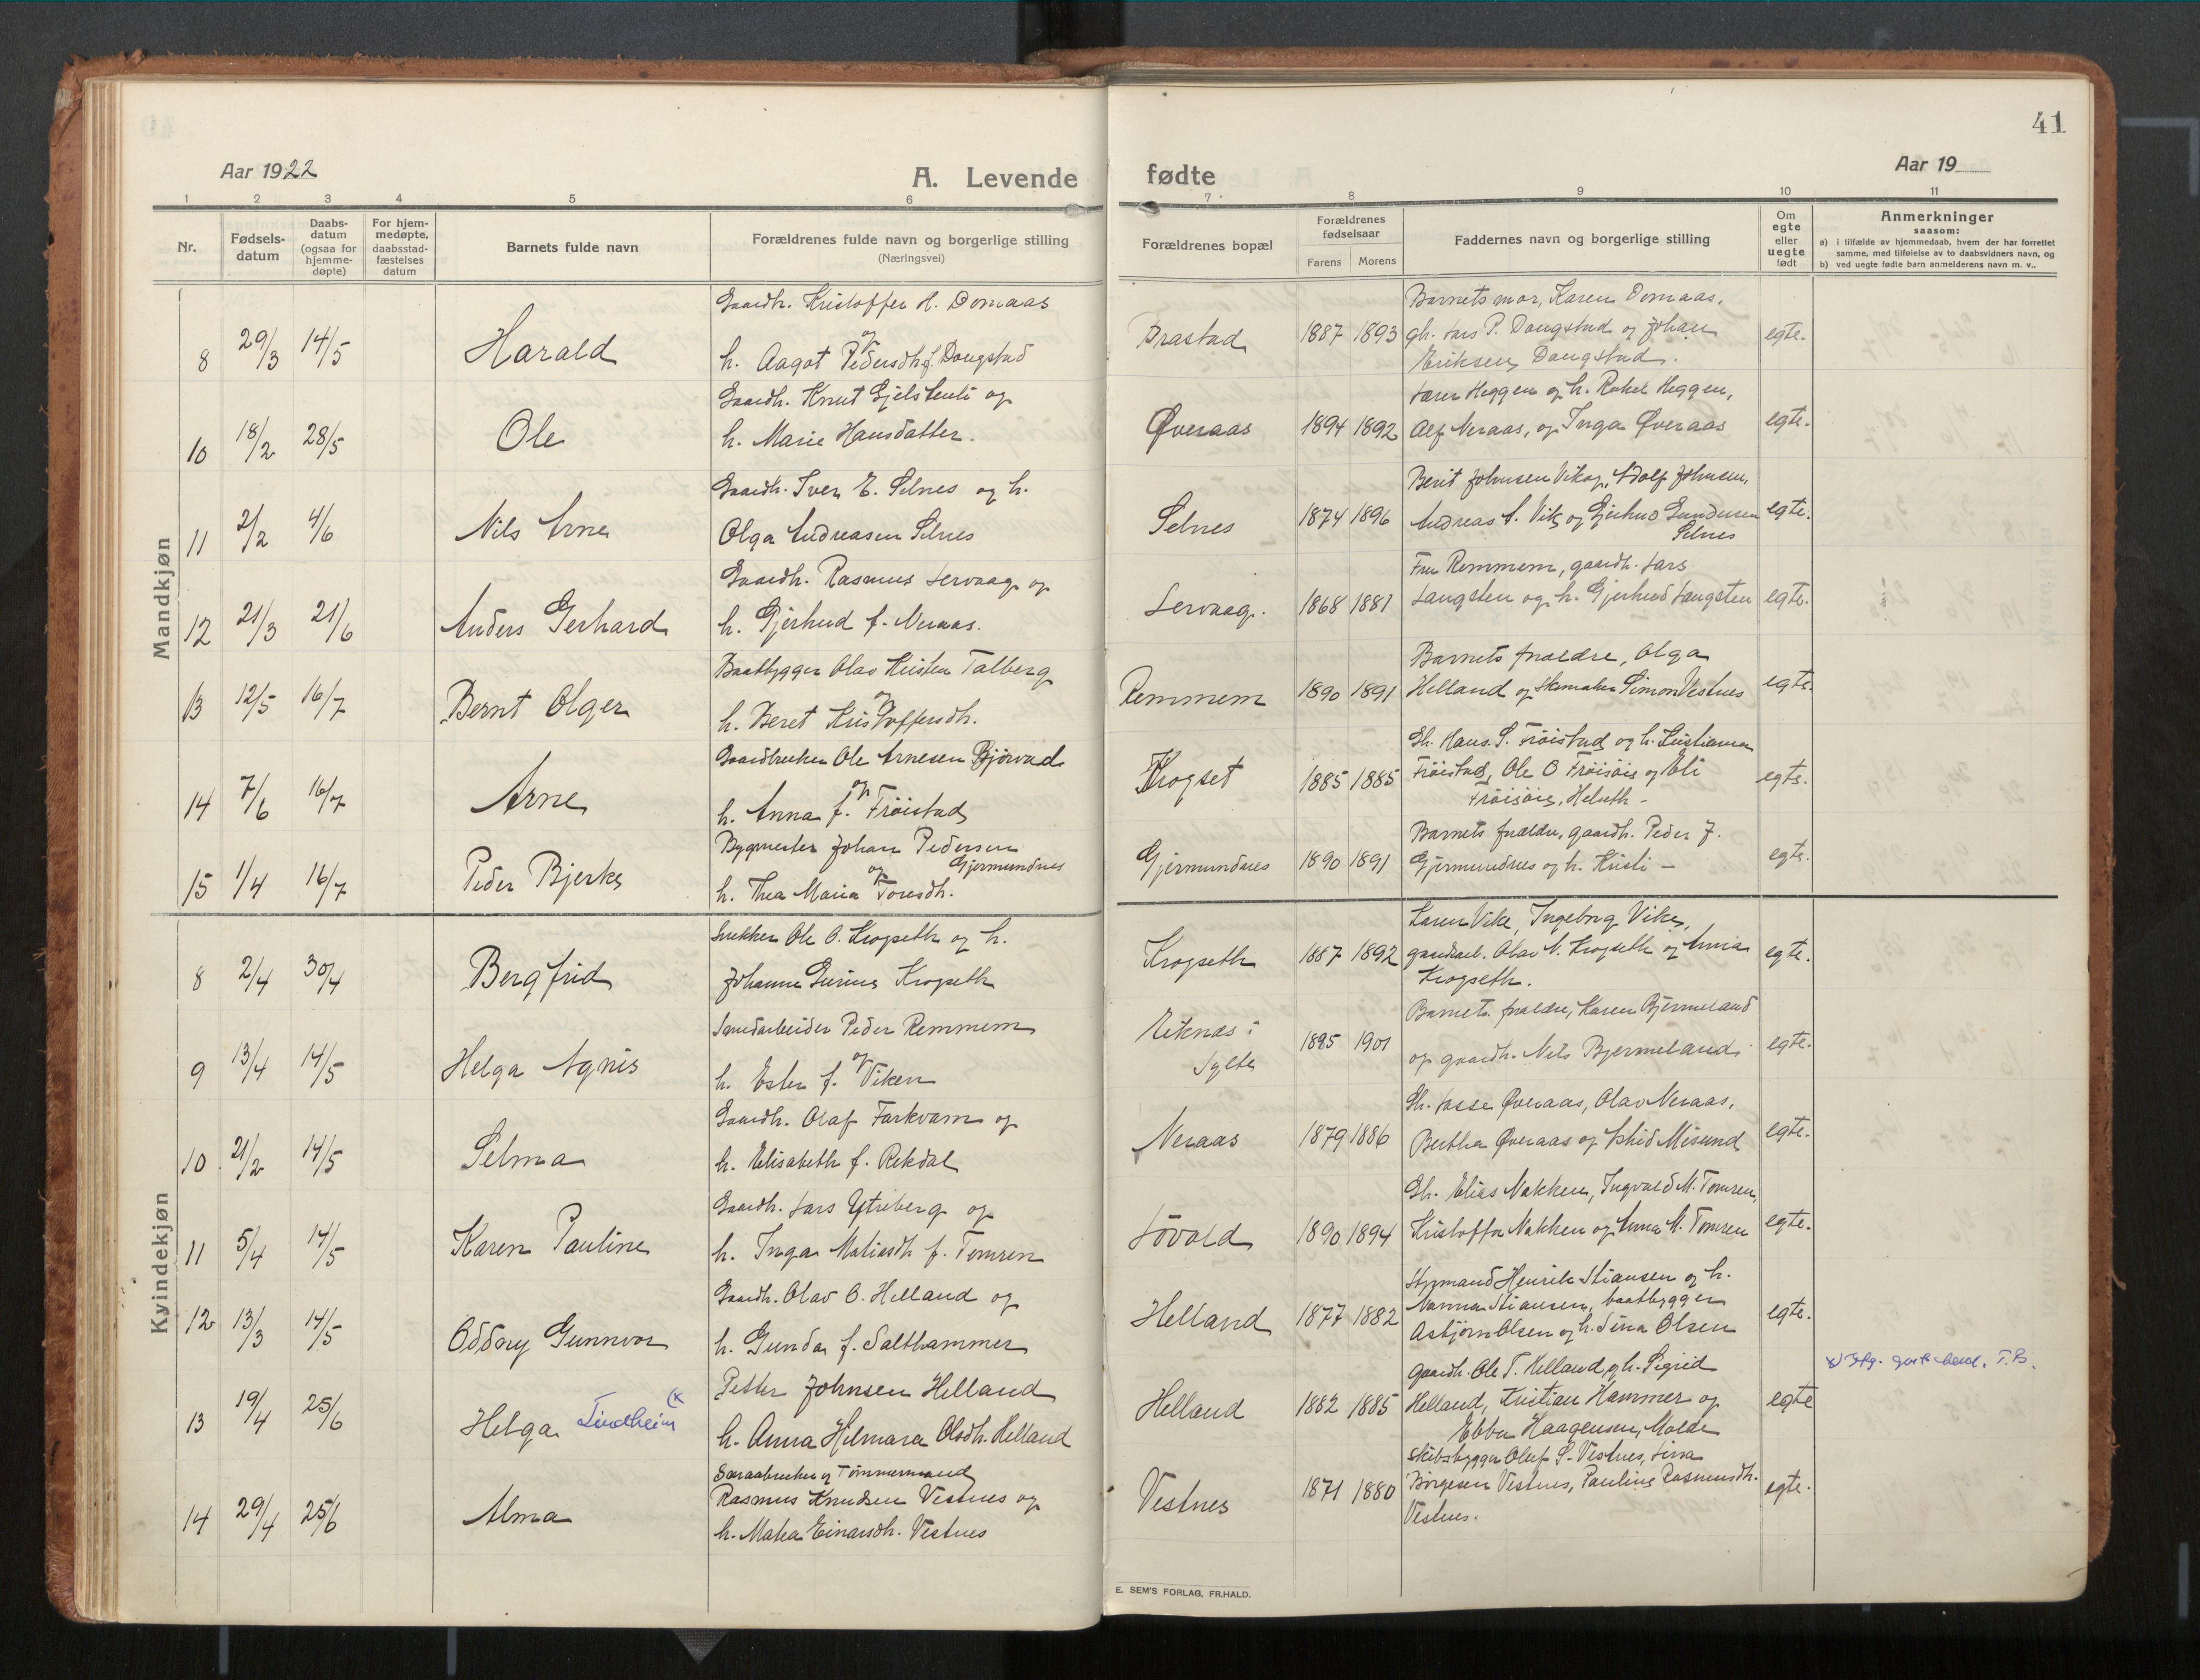 41
Aar 1922
A. Levende
fødte
Aar 19
1 2 3 4 5 6 7 8 9 10 11
Nr.
Fødsels-datum
Daabs-datum (ogsaa for hjemme-døpte)
For hjem-medøpte, daabsstad-fæstelses datum
Barnets fulde navn
Forældrenes fulde navn og borgerlige stilling
(Næringsvei)
Forældrenes bopæl
Forældrenes fødselsaar
Farens Morens
Faddernes navn og borgerlige stilling
Om egte eller uegte født
Anmerkninger
saasom:
a) i tilfælde av hjemmedaab, hvem der har forrettet samme, med tilføielse av to daabsvidners navn, og
b) ved uegte fødte barn anmelderens navn m. v..
Mandkjøn
8 29/3 14/5 Harald
Gaardb. Kristoffer H. Domaas
og
h. Aagot Pedersdh. f. Dougstad
Brastad 1887 1893
Barnets mor, Karen Domaas,
gh. Lars P. Dougstad og Johan
Eriksen Dougstad.
egte.
10 18/2 28/5 Ole
Gaardb. Knut Gjelstenli og
h. Marie Hansdatter.
Øveraas 1894 1892
Lærer Heggen og h. Rakel Heggen,
Alf Neraas, og Inga Øveraas
egte.
11 2/2 4/6 Nils Arne
Gaardb. Iver E. Selnes og h.
Olga Andreasen Selnes
Selnes 1874 1896
Berit Johnsen Vik og Adolf Johnsen,
Andreas A. Vik og Gjerhud Gundersen
Selnes
egte.
12 21/3 21/6 Anders Gerhard
Gaardb. Rasmus Lervaag og
h. Gjerhud f. Neraas.
Lervaag. 1868 1881
Fru Remmem, gaardb. Lars
Langsten og h. Gjerhud Langsten
egte.
13 12/5 16/7 Bernt Olger
Baatbygger Olav Kristen Talberg
og
h. Beret Kristoffersdh.
Remmem 1890 1891
Barnets forældre, Olga
Helland og Skomaker Simon Vestnes
egte.
14 7/6 16/7 Arne
Gaardbruker Ole Arnesen Bjørvad
og
h. Anna f. Frøistad
Krogset 1885 1885
Gb. Hans. S. Frøistad og h. Kristianna
Frøistad, Ole O Frøisøie og Eli
Frøisøie, Helseth -
egte.
15 1/4 16/7 Peder Bjerke
Bygmester Johan Pedersen
og Gjermundnes
h. Thea Maria Toresdh.
Gjermundnes 1890 1891
Barnets forældre, gaardb. Peder J.
Gjermundnes og h. Kristi -
egte.
Kvindekjøn
8 2/4 30/4 Bergfrid
Snekker Ole O. Krogseth og h.
Johanne Gurine Krogseth
Krogseth 1887 1892
Karen Vike, Ingeborg Vike,
gaardarb. Olav N. Krogseth og Anna
Krogseth.
egte.
9 13/4 14/5 Helga Agnis
Sandarbeider Peder Remmem
og
h. Ester f. Viken
Reknæs i
Sylte
1895 1901
Barnets forældre, Karen Bjermeland
og gaardb. Nils Bjermeland
egte.
10 21/2 14/5 Selma
Gaardb. Olaf Farkvam og
h. Elisabeth f. Rekdal
Neraas 1879 1886
Gb. Lasse Øveraas, Olav Neraas,
Bertha Øveraas og Astrid Misund
egte.
11 5/4 14/5 Karen Pauline
Gaardb. Lars Ytreberg og
h. Inga Matiasdh f. Tomren
Løvold 1890 1894
Gb. Elias Nakken, Ingvald M. Tomren,
Kristoffa Nakken og Anna M. Tomren
egte.
12 13/3 14/5 Oddny Gunnvor
Gaardb. Olav O. Helland og
h. Gunda f. Salthammer
Helland 1877 1882
Styrmand Henrik Stiansen og h.
Nanna Stiansen, baatbygger
Asbjørn Olsen og h. Lina Olsen
egte.
13 19/4 25/6 Helga Lindheim (x
Petter Johnsen Helland
h. Anna Hilmara Olsdh. Helland
Helland 1882 1885
Gaardb. Ole T. Helland og h. Sigrid
Helland, Kristian Hammer og
Ebba Haagensen, Molde
egte
14 29/4 25/6 Alma
Smaabruker og Tømmermand
Rasmus Knudsen Vestnes og
h. Matea Einarsdh. Vestnes
Vestnes 1871 1880
Skibsbygger Oluf S. Vestnes, Lina
Børgesen Vestnes, Pauline Rasmusdh.
Vestnes.
egte.
E. SEM'S FORLAG, FR.HALD.